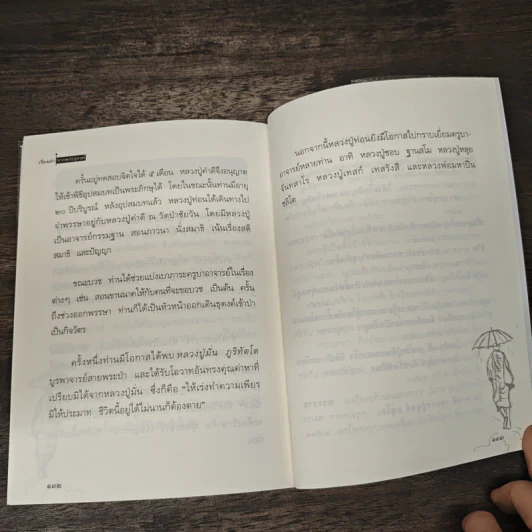 เรื่องเล่า
ครั้นอยู่ทดสอบจิตใจได้ ๕ เดือน หลวงปู่คำดีจึงอนุญาต
ให้เข้าพิธีอุปสมบทเป็นพระภิกษุได้ โดยในขณะนั้นท่านมีอายุ
๒๐ ปีบริบูรณ์ หลังอุปสมบทแล้ว หลวงปู่ท่อนได้เดินทางไป
จำพรรษาอยู่กับหลวงปู่คำดี ณ วัดป่าชัยวัน โดยมีหลวงปู่
เป็นอาจารย์กรรมฐาน สอนภาวนา นั่งสมาธิ เน้นเรื่องสติ
สมาธิ และปัญญา
ขณะบวช ท่านได้ช่วยแบ่งเบาภาระครูบาอาจารย์ในเรื่อง
ต่างๆ เช่น สอนขานนาคให้กับคนที่จะขอบวช เป็นต้น ครั้น
ถึงช่วงออกพรรษา ท่านก็ได้เป็นหัวหน้าออกเดินธุดงค์เข้าป่า
เป็นกิจวัตร
ครั้งหนึ่งท่านมีโอกาสได้พบหลวงปู่มั่น ภูริทัตโต
บูรพาจารย์สายพระป่า และได้รับโอวาทอันทรงคุณค่าหาที่
เปรียบมิได้จากหลวงปู่มั่น ซึ่งก็คือ "ให้เร่งทำความเพียร
มิให้ประมาท ชีวิตนี้อยู่ได้ไม่นานก็ต้องตาย"
๑๓๒
นอกจากนี้หลวงปู่ท่อนยังมีโอกาสไปกราบเยี่ยมครูบา-
อาจารย์หลายท่าน อาทิ หลวงปู่ชอบ ฐานสโม หลวงปู่หลุย
จันทสาโร หลวงปู่เทสก์ เทสรังสี และหลวงพ่อมหาปิ่น
ชลิโต
๑๓๓